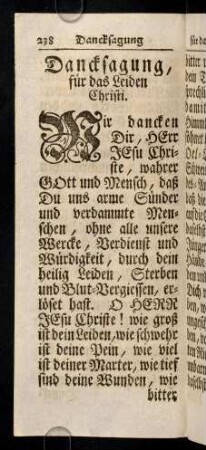 238 Dancksagung
Dancksagung,
für das Leiden
Christi.
Wir dancken
Dir, HErr
JEsu Chri-
ste, wahrer
GOtt und Mensch, daß
Du uns arme Sünder
und verdammte Men-
schen, ohne alle unsere
Wercke, Verdienst und
Würdigkeit, durch dein
heilig Leiden, Sterben
und Blut-Vergiessen, er-
löset hast. O HERR
JEsu Christe! wie groß
ist dein Leiden, wie schwehr
ist deine Pein, wie viel
ist deiner Marter, wie tief
sind deine Wunden, wie
bitter